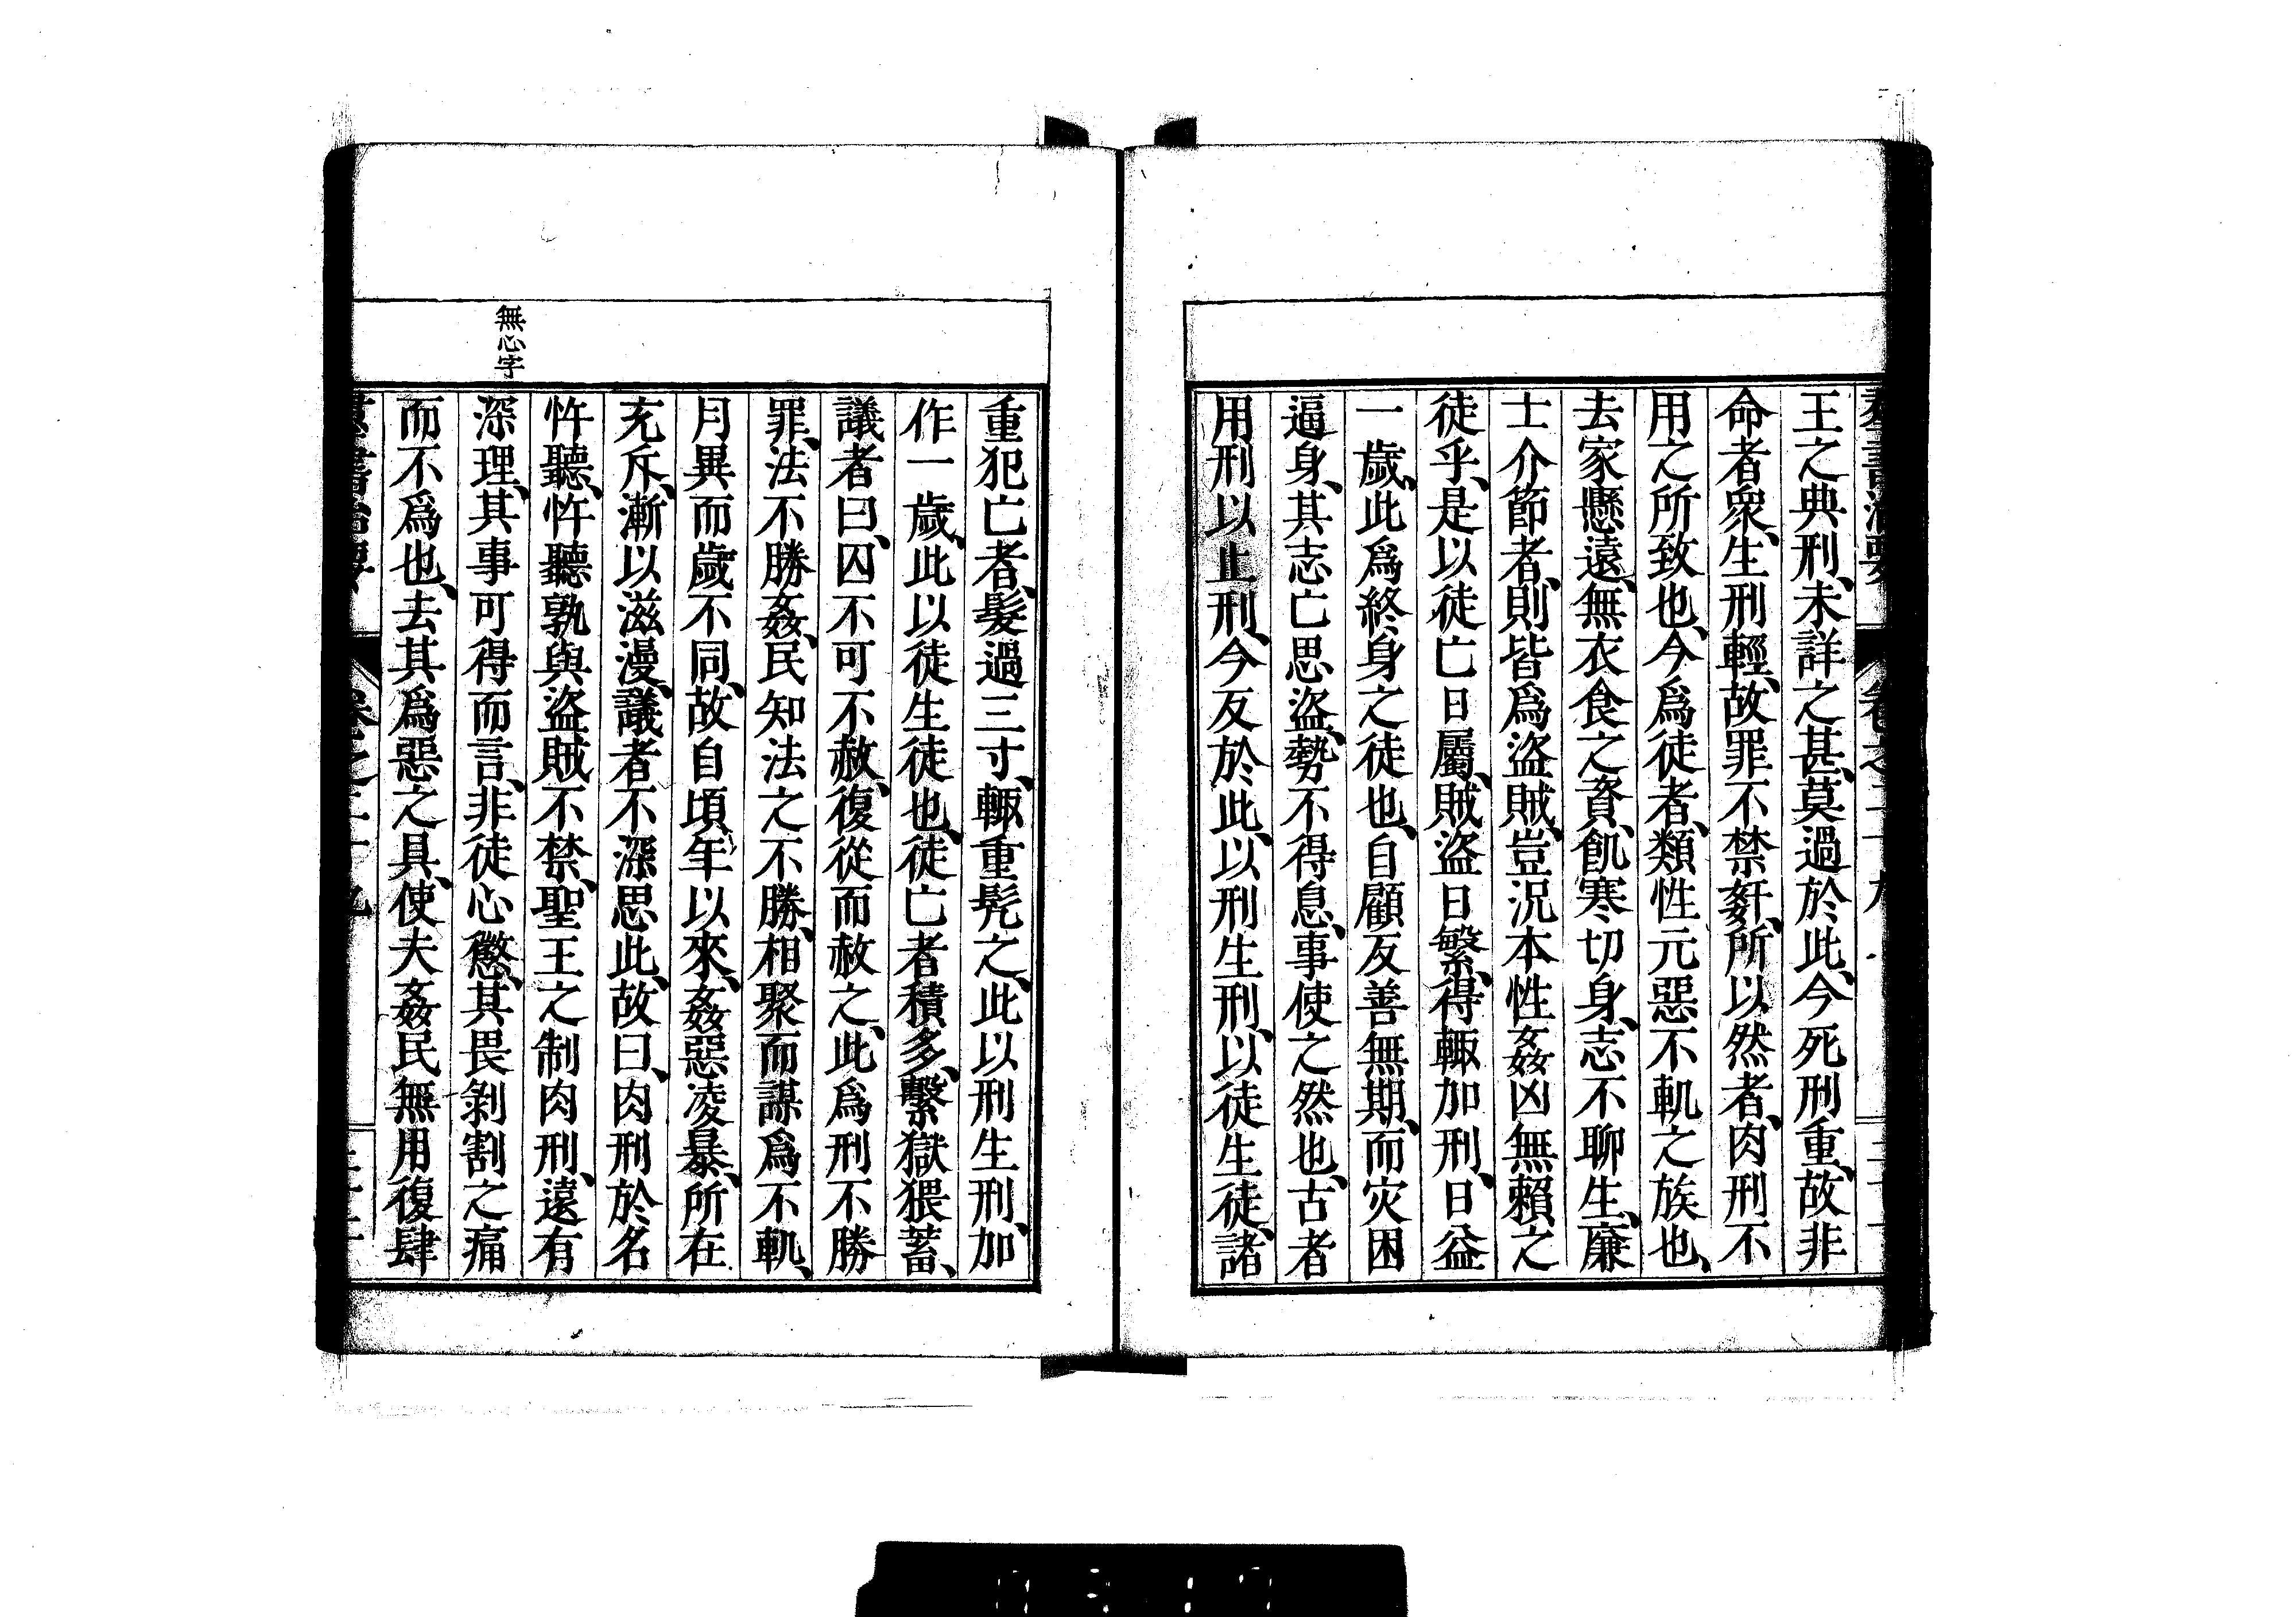 王之典刑、未詳之甚、莫過於此、今死刑重、故非
命者衆、生刑輕、故罪不禁姧、所以然者、肉刑不
用之所致也、今爲徒者、類性元惡不軌之族也、
去家懸遠、無衣食之資、飢寒切身、志不聊生、廉
士介節者、則皆爲盜賊、豈況本性姦凶無賴之
徒乎、是以徒亡日屬、賊盜日繁、得輙加刑、日益
一歲、此爲終身之徒也、自顧反善無期、而灾困
逼身、其志亡思盜、勢不得息、事使之然也、古者
用刑以止刑、今反於此、以刑生刑、以徒生徒、諸
重犯亡者、髮過三寸、輙重髡之、此以刑生刑、加
作一歲、此以徒生徒也、徒亡者積多、繫獄猥蓄、
議者曰、囚不可不赦、復從而赦之、此爲刑不勝
罪、法不勝姦、民知法之不勝、相聚而謀爲不軌、
月異而歲不同、故自頃年以來、姦惡凌暴、所在
充斥、漸以滋漫、議者不深思此、故曰、肉刑於名
忤聽、忤聽孰與盜賊不禁、聖王之制肉刑、遠有
無心字
深理、其事可得而言、非徒心懲、其畏剝割之痛
而不爲也、去其爲惡之具、使夫姦民無用復肆